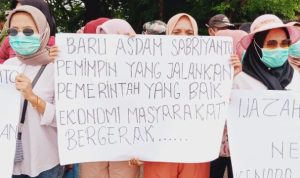 BARU ASDAM SABRIYANTO
PEMIMPIN YANG JALANKAN
PEMERINTAH YANG BAIK
EKONOMI MASYARAKAT
BERGERAK......
IJAZAH
NE